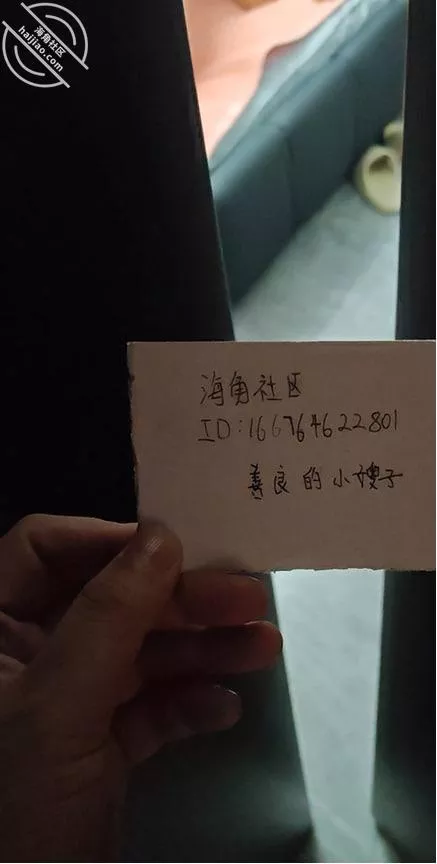 海角社区
haijiao.com
海角社区
ID:166764622801
善良的小嫂子